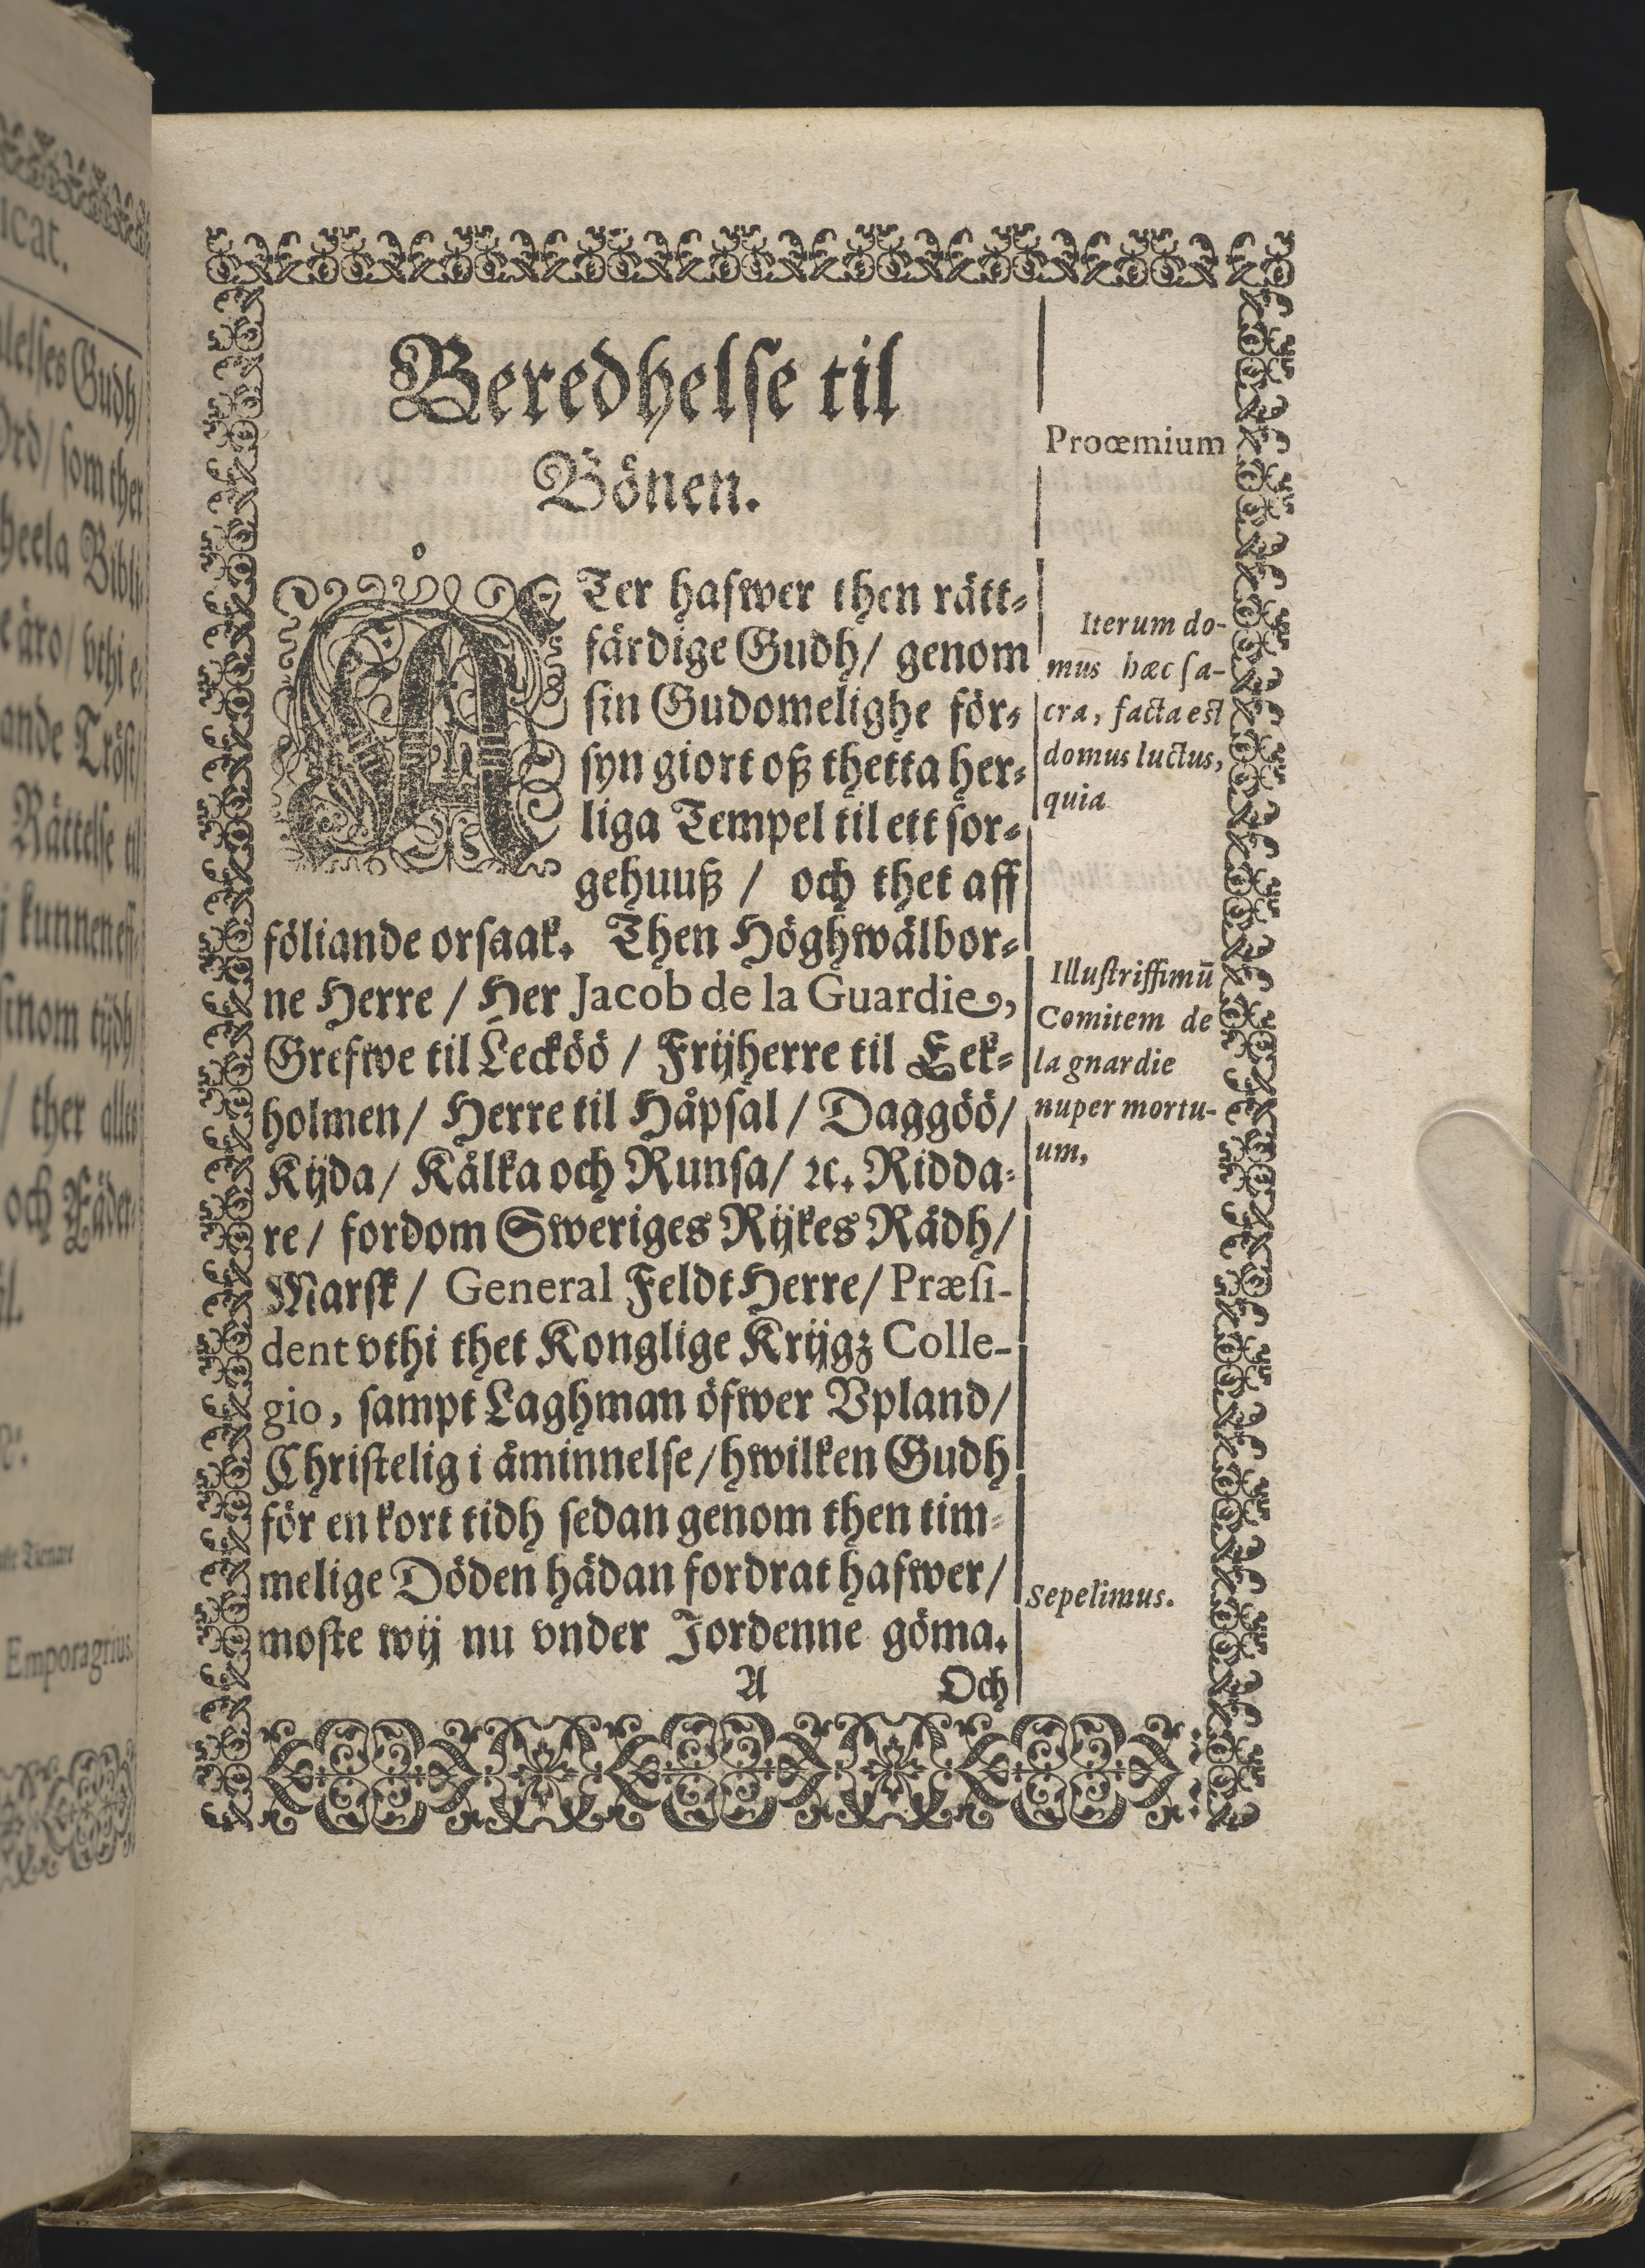 Beredhelse til
Bönen.
ÅTer hafwer then rätt-
färdige Gudh/ genom
sin Gudomelighe för-
syn giort oß thetta her-
liga Tempel til ett sor-
gehuuß / och thet aff
föliande orsaak. Then Höghwälbor-
ne Herre / Her Jacob de la Guardie,
Grefwe til Leckőő / Frijherre til Eek-
holmen/ Herre til Håpsal / Daggöö/
Kijda/ Kålka och Runsa/ ꝛc. Ridda-
re/ fordom Sweriges Rijkes Rådh/
Marsk/ General FeldtHerre/ Præsi-
dent vthi thet Konglige Krijgz Colle-
gio, sampt Laghman öfwer Vpland/
Christelig i åminnelse/hwilken Gudh
för en kort tidh sedan genom then tim-
melige Döden hädan fordrat hafwer/
moste wij nu vnder Jordenne göma.
A Och
Proœmium
Iterum do-
mus hæc sa-
cra, facta est
domus luctus,
quia
Illustrissimū
Comitem de
la gnardie
nuper mortu-
um,
Sepelimus.
icat.
Gudh/
Ord/ som ther
heela Bibli-
e äro/ vthi e-
ande Tröst/
Rättelse til
j kunnen eff-
sinom tijdh/
/ ther alles
och Fäder-
Tienare
Emporagrius.